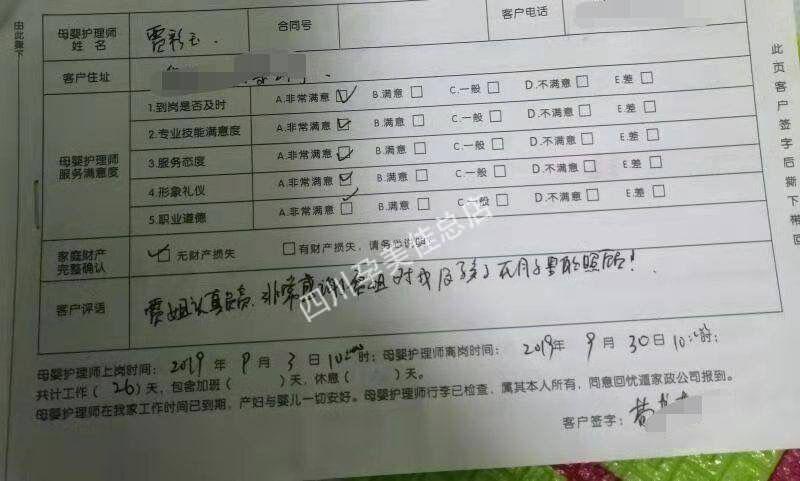 由此撕下
母婴护理师姓名 贾彩玉. 合同号 客户电话
客户住址
母婴护理师服务满意度
1.到岗是否及时 A.非常满意☑ B.满意□ C.一般□ D.不满意□ E.差□
2.专业技能满意度 A.非常满意☑ B.满意□ C.一般□ D.不满意□ E.差□
3.服务态度 A.非常满意☑ B.满意□ C.一般□ D.不满意□ E.差□
4.形象礼仪 A.非常满意☑ B.满意□ C.一般□ D.不满意□ E.差□
5.职业道德 A.非常满意☑ B.满意□ C.一般□ D.不满意□ E.差□
家庭财产完整确认 ☑无财产损失 □有财产损失，请务必说明：
客户评语 贾姐认真负责，非常感谢贾姐对我及孩子在月子里的照顾！
母婴护理师上岗时间：2019年9月3日10:00时；母婴护理师离岗时间：2019年9月30日10:00时；
共计工作（26）天，包含加班（ ）天，休息（ ）天。
母婴护理师在我家工作时间已到期，产妇与婴儿一切安好。母婴护理师行李已检查，属其本人所有，同意回忧道家政公司报到。
客户签字：
此页客户签字后撕下带回
四川孕美佳总店